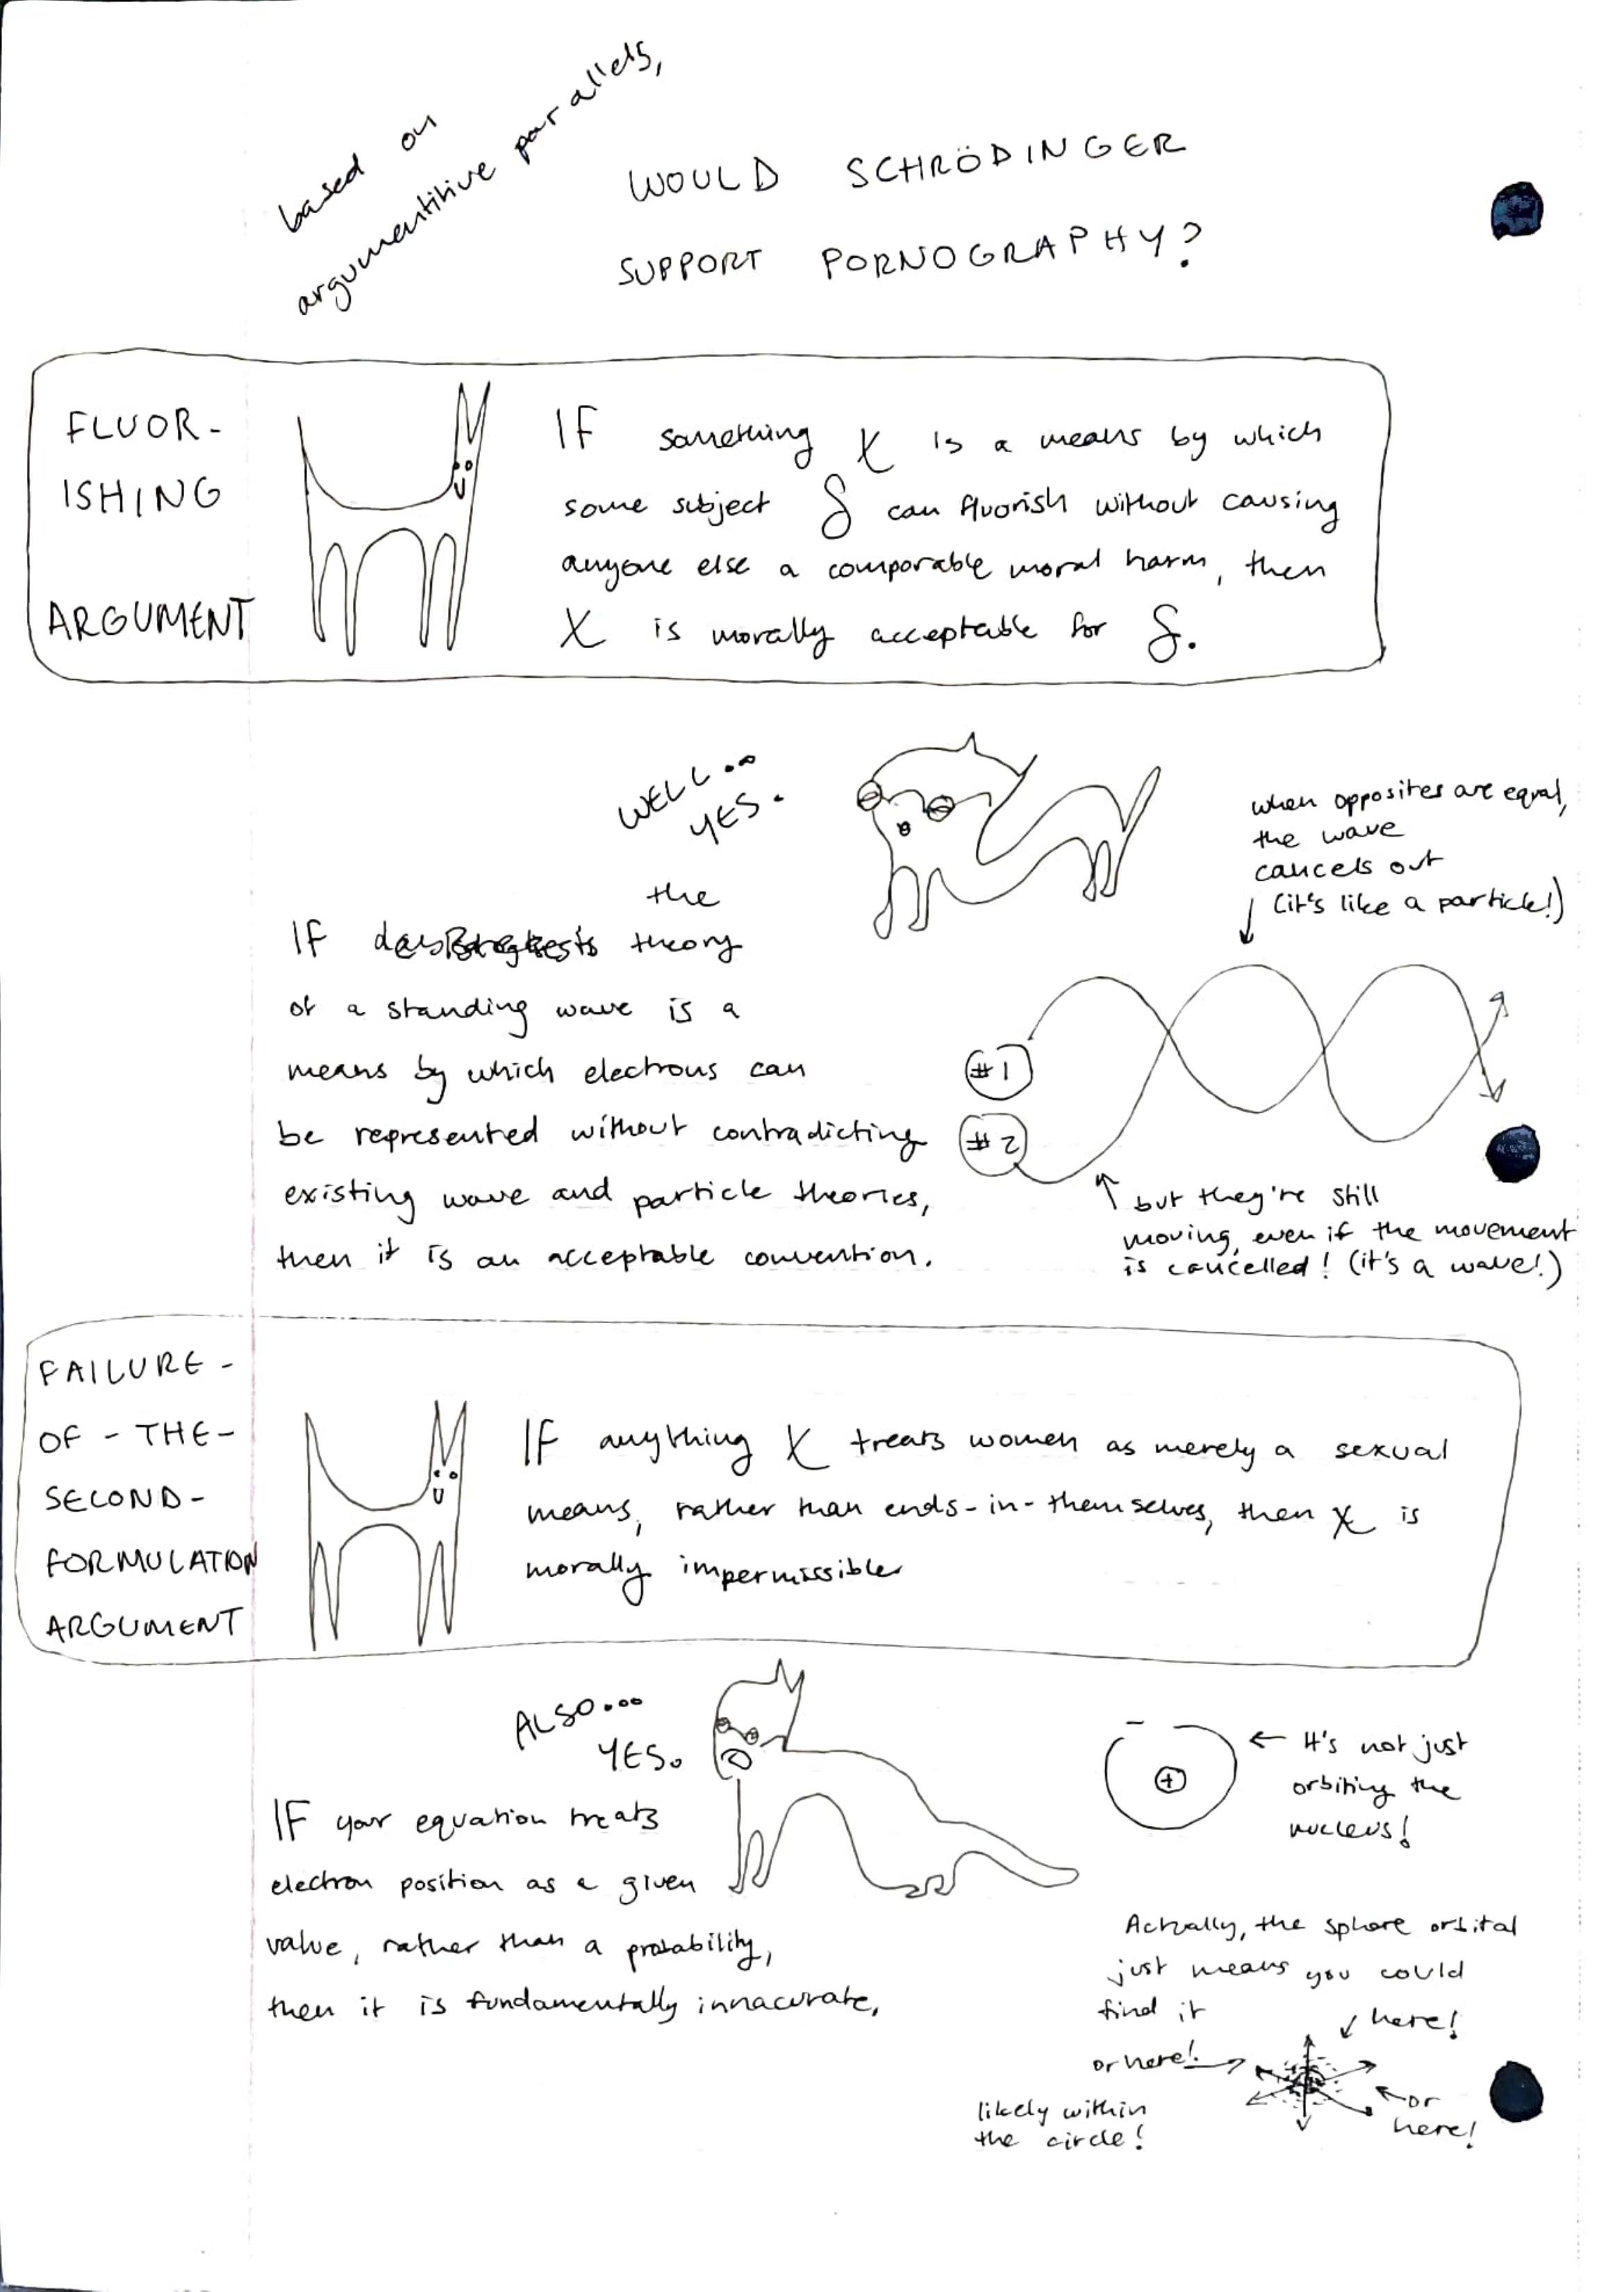 based on
argumentitive parallels,
WOULD SCHRÖDINGER
SUPPORT PORNOGRAPHY?
FLUOR-
ISHING
ARGUMENT
IF something X is a means by which
some subject S can fluorish without causing
anyone else a comparable moral harm, then
X is morally acceptable for S.
WELL...
YES.
when opposites are equal,
the wave
cancels out
(it's like a particle!)
the
If theory
of a standing wave is a
means by which electrons can
be represented without contradicting
existing wave and particle theories,
then it is an acceptable convention.
#1
#2
but they're still
moving, even if the movement
is cancelled! (it's a wave!)
FAILURE-
OF-THE-
SECOND-
FORMULATION
ARGUMENT
IF anything X treats women as merely a sexual
means, rather than ends-in-themselves, then X is
morally impermissible
ALSO...
YES.
IF your equation treats
electron position as a given
value, rather than a probability,
then it is fundamentally innacurate.
-
+
It's not just
orbiting the
nucleus!
Actually, the sphere orbital
just means you could
find it
here!
or here!
or
here!
likely within
the circle!